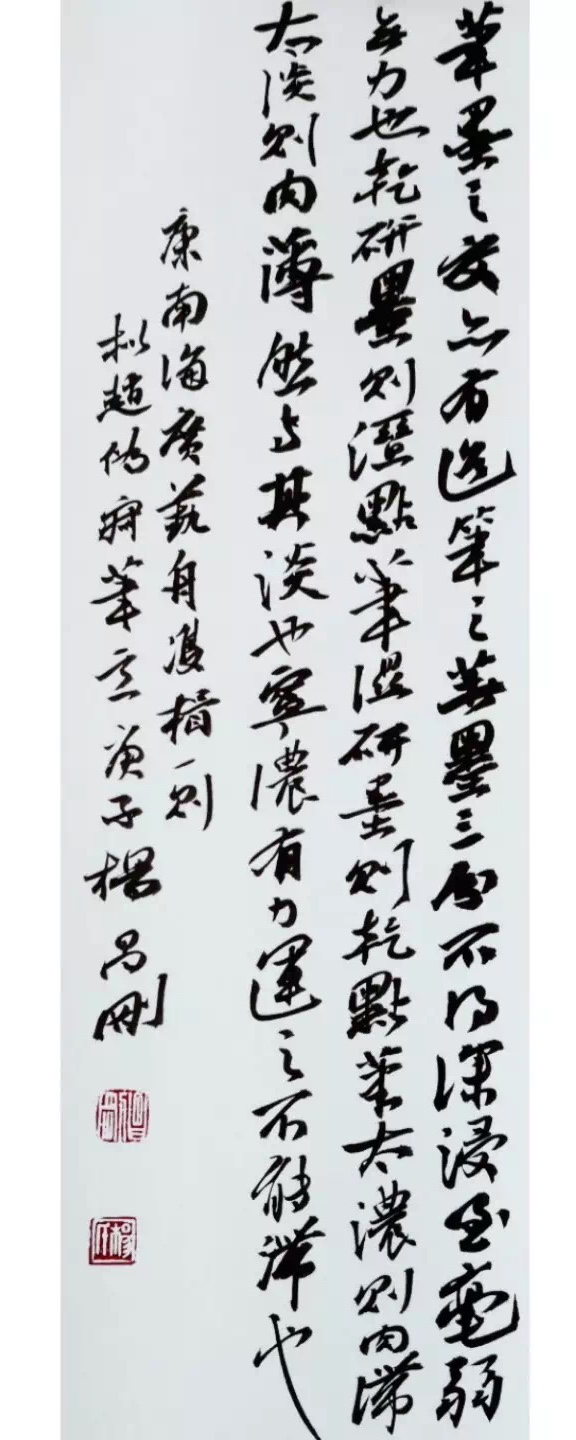 筆墨之交亦有道筆之著墨三分不得深浸至毫弱
無力也乾研墨則溼點筆溼研墨則乾點筆太濃則肉滯
太淡則肉薄然与其淡也寧濃有力運之不能滯也
康南海廣藝舟雙楫一則
拟趙佛齋筆意庚子楊昌刚